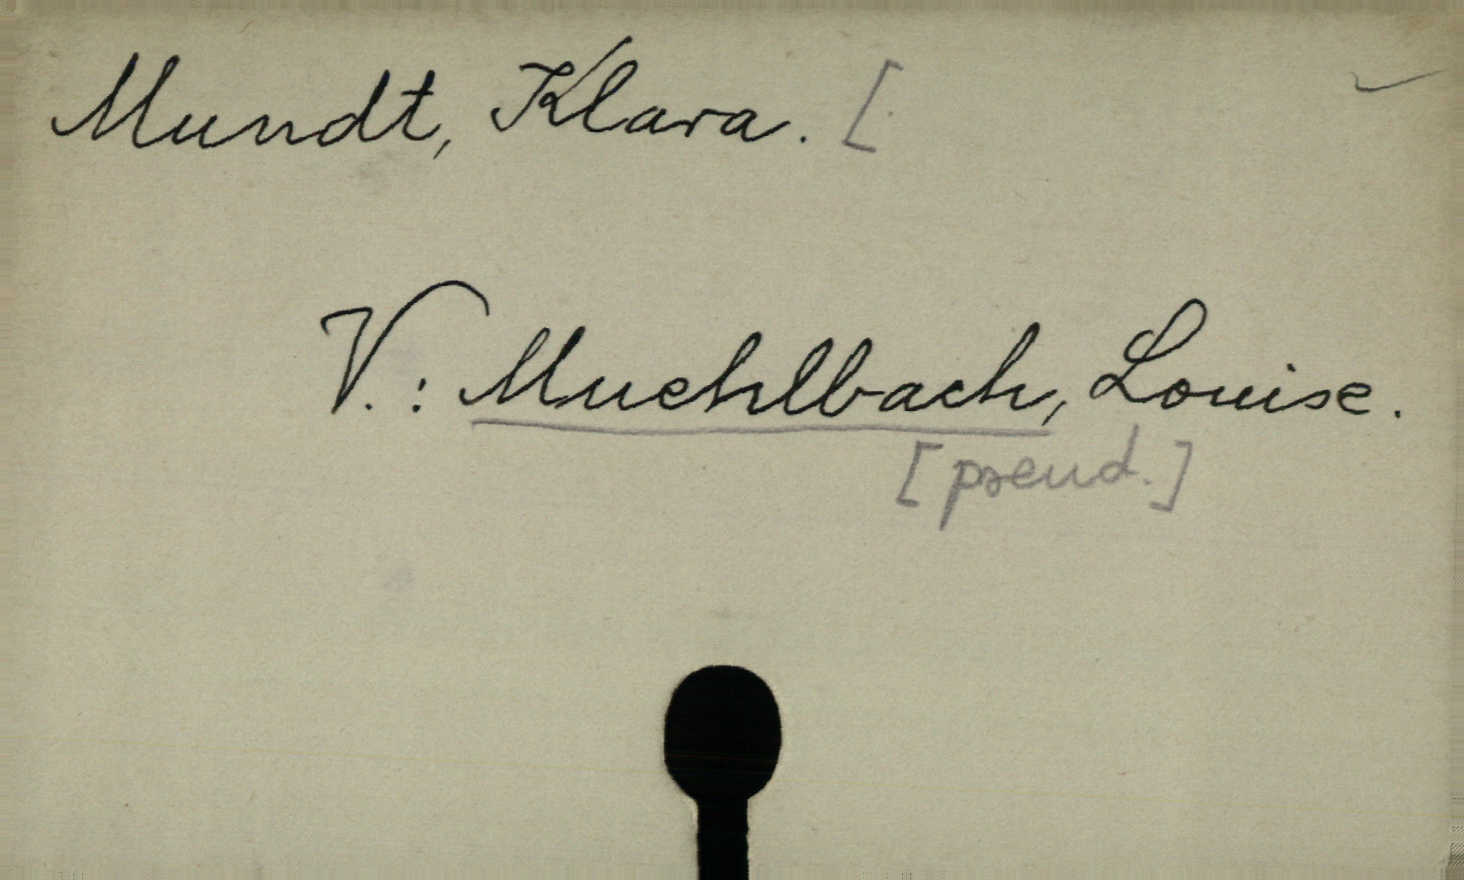 Mundt, Klara. [
V.: Muehlbach, Louise.
[pseud.]